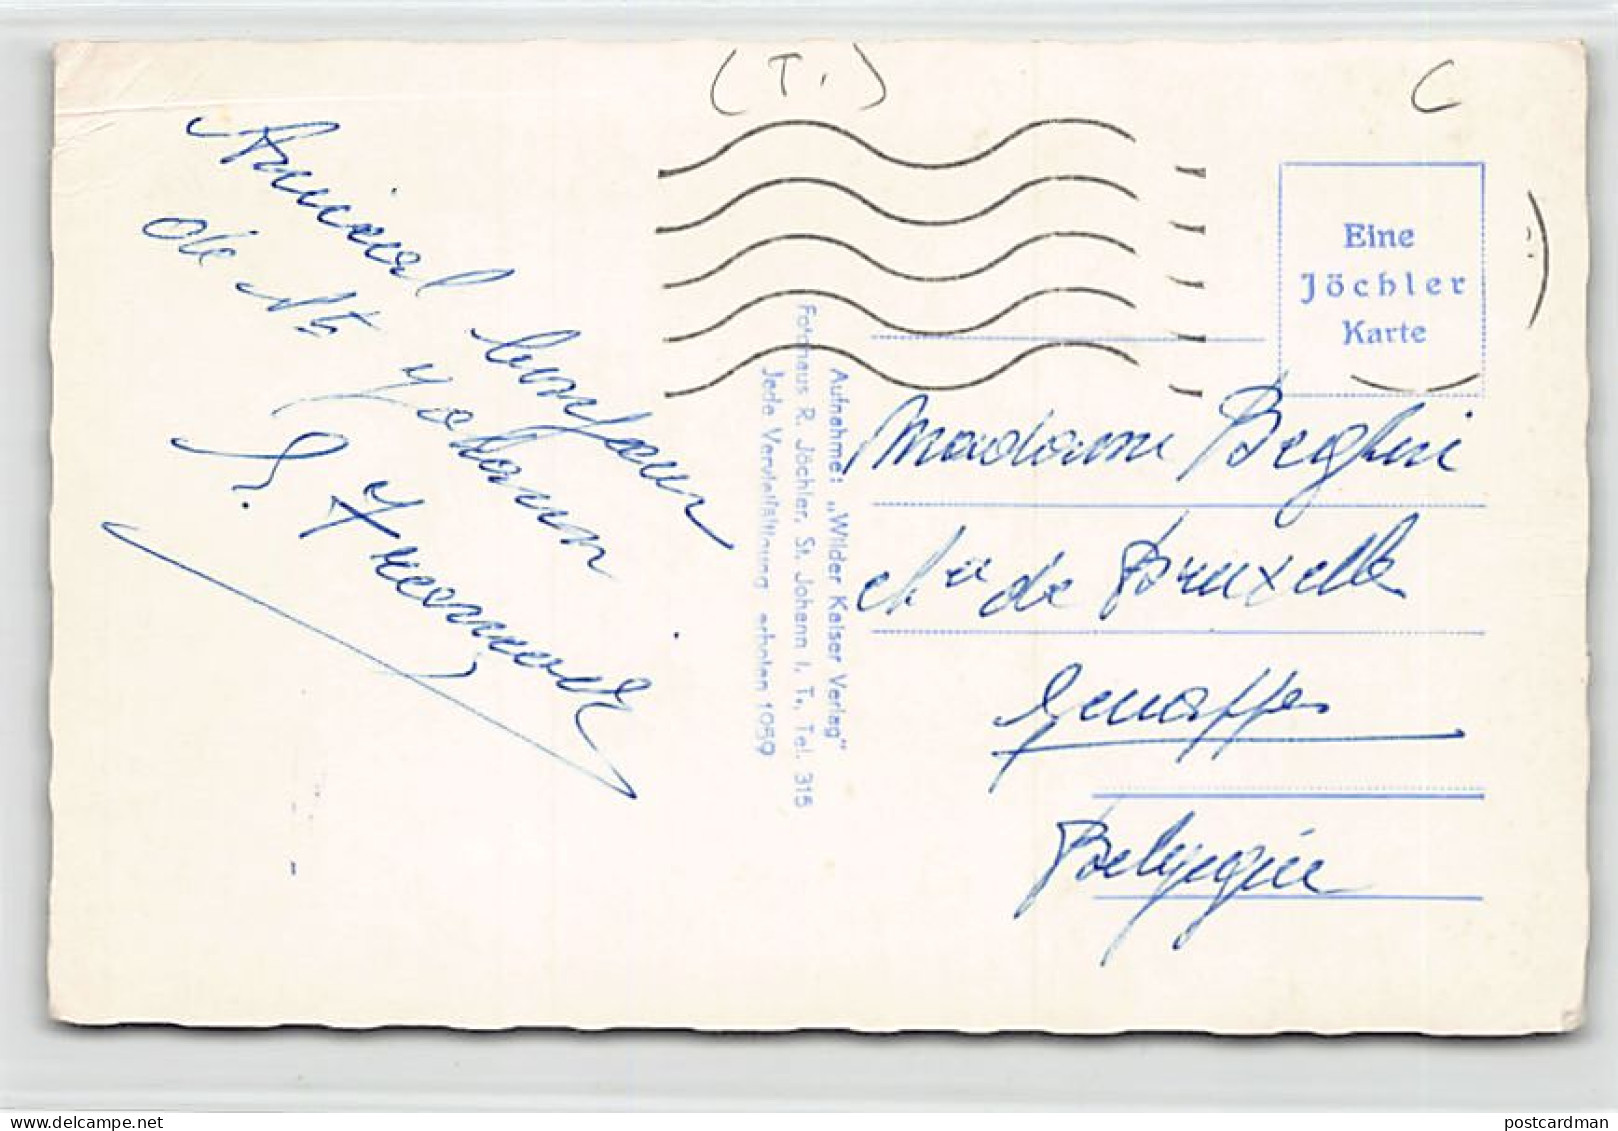 (T.)
C
Amical bonjour
de St Johann
S.
Eine
Jöchler
Karte
Aufnahme: „Wilder Kaiser Verlag"
Fotohaus R. Jöchler, St. Johann i. T., Tel. 315
Jede Vervielfältigung erboten 1059
Madame Beghin
de Bruxelle
Genappe
Belgique
postcardman